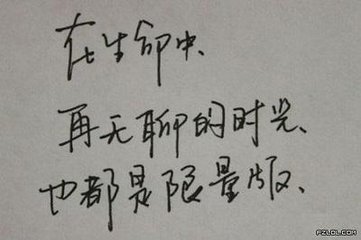 在生命中、
再无聊的时光、
也都是限量版、
PZLDL.COM